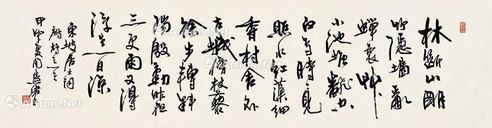 林斷山明
竹隱墙亂
蟬衰草
小池塘翻空
白鳥時時見
照水紅蕖細細
香村舍外
古城旁杖藜
徐步轉斜
陽殷勤昨夜
三更雨又得
浮生一日涼
東坡居士詞